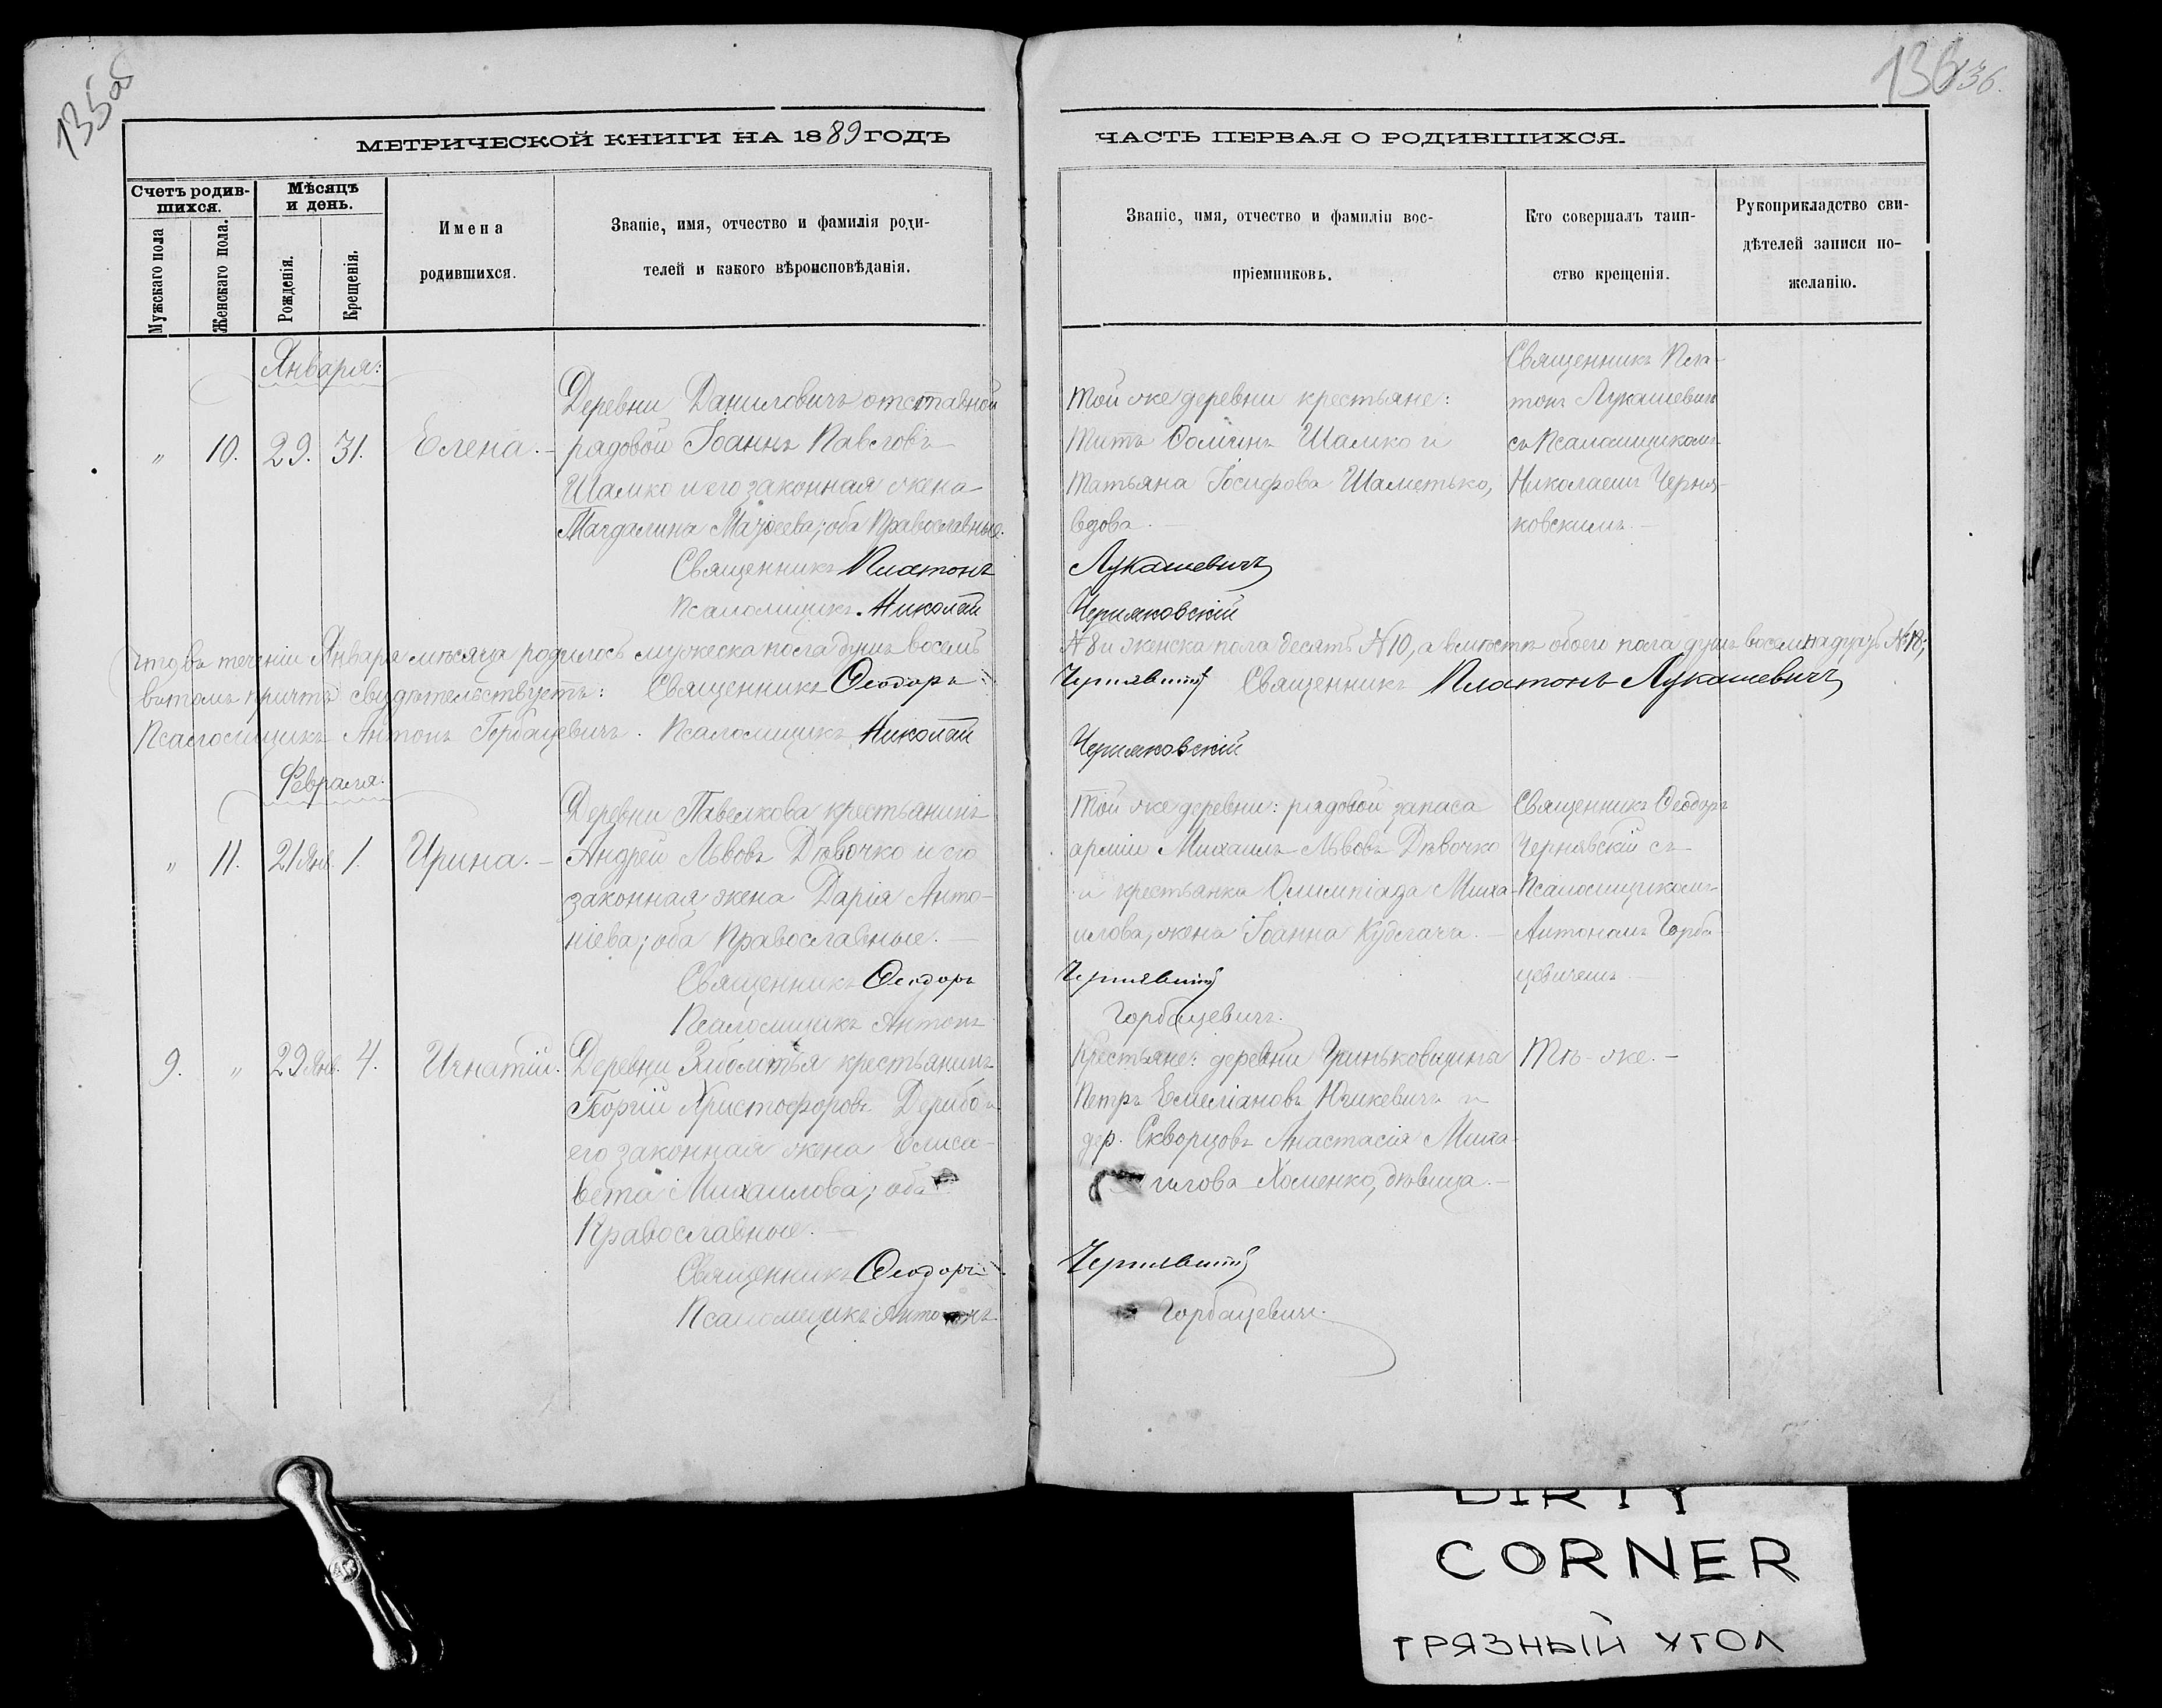 135об
136
136.
МЕТРИЧЕСКОЙ КНИГИ НА 1889 ГОДЪ
ЧАСТЬ ПЕРВАЯ О РОДИВШИХСЯ.
Счетъ родив-
шихся.
Мужскаго пола
Женскаго пола.
Мѣсяцъ
и день.
Рожденія.
Крещенія.
Имена
родившихся.
Званіе, имя, отчество и фамилія роди-
телей и какого вѣроисповѣданія.
Званіе, имя, отчество и фамиліи вос-
пріемниковъ.
Кто совершалъ таин-
ство крещенія.
Рукоприкладство сви-
дѣтелей записи по-
желанію.
Января:
„ 10. 29. 31. Елена. –
Деревни Даниловичъ отставной
рядовой Іоаннъ Павловъ
Шамко и его законная жена
Магдалина; оба Православные.
Священникъ Платонъ
Псаломщикъ Николай
Той же деревни крестьяне:
Титъ Ѳоминъ Шамко и
Татьяна Іосифова Шаметько,
вдова. –
Лукашевичъ
Черняковскій
Священникъ Пла-
тонъ Лукашевичъ
съ Псаломщикомъ
Николаемъ Черня-
ковскимъ. –
Что въ теченіи Января мѣсяца родилось мужеска пола душъ восемь
№ 8 и женска пола десять № 10, а вмѣстѣ обоего пола душъ восемнадцать № 18;
въ томъ причтъ свидѣтельствуетъ: Священникъ Ѳеодоръ
Чернявскій Священникъ Платонъ Лукашевичъ
Псаломщикъ Антонъ Горбацевичъ. Псаломщикъ Николай
Черняковскій
Февраля.
„ 11. 21 Янв. 1. Ирина. –
Деревни Павелкова крестьянинъ
Андрей Львовъ Дѣвочко и его
законная жена Дарія Анто-
ніева; оба Православные. –
Священникъ Ѳеодоръ
Псаломщикъ Антонъ
Той же деревни: рядовой запаса
арміи Михаилъ Львовъ Дѣвочко
и крестьянка Олимпіада Миха-
илова, жена Іоанна Кудлача. –
Чернявскій
Горбацевичъ.
Священникъ Ѳеодоръ
Чернявскій съ
Псаломщикомъ
Антономъ Горба-
цевичемъ
9. „ 29 Янв. 4. Игнатій.
Деревни Заболотья крестьянинъ
Георгій Христофоровъ Дерибо и
его законная жена Елиса-
вета Михаилова; оба
Православные. –
Священникъ Ѳеодоръ
Псаломщикъ Антонъ
Крестьяне: деревни Гриньковщина
Петръ Емеліановъ Юшкевичъ и
дер. Скворцовъ Анастасія Миха-
илова Хоменко, дѣвица. –
Чернявскій
Горбацевичъ.
Тѣ-же. –
DIRTY
CORNER
ГРЯЗНЫЙ УГОЛ